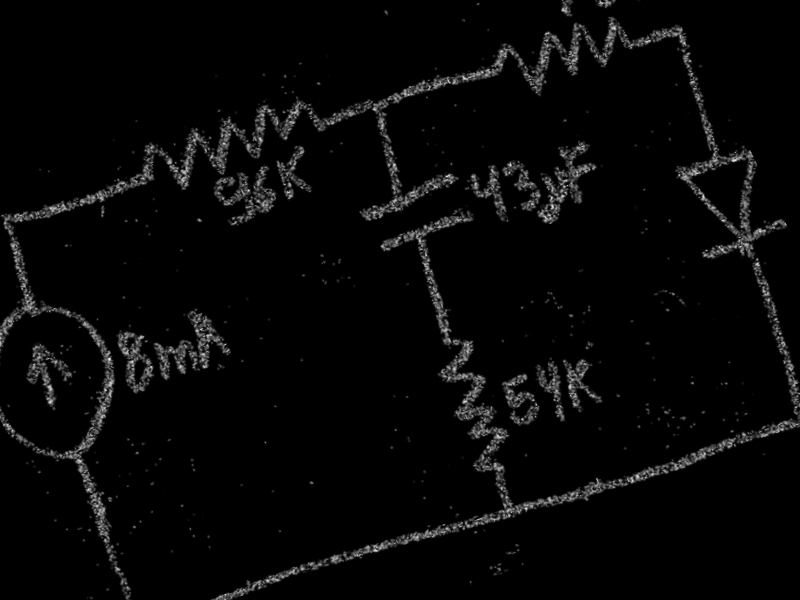 56K
43µF
8mA
54K